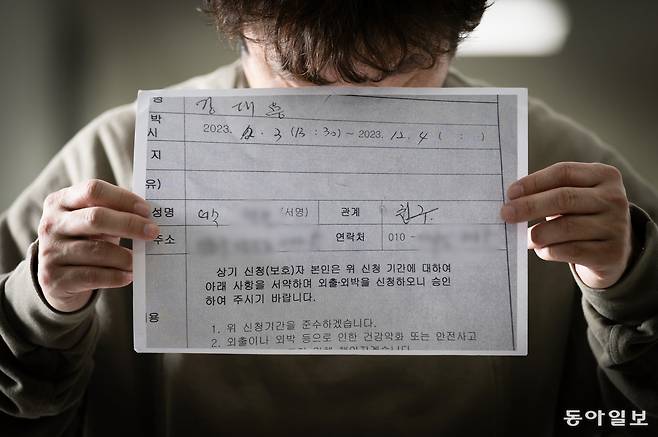 명 김 대 흥
박
시 2023. 12. 3 (13 : 30) ~ 2023. 12. 4 ( : )
지
유)
성명 (서명) 관계 친구
주소 연락처 010 -
상기 신청(보호)자 본인은 위 신청 기간에 대하여
아래 사항을 서약하며 외출·외박을 신청하오니 승인
하여 주시기 바랍니다.
용
1. 위 신청기간을 준수하겠습니다.
2. 외출이나 외박 등으로 인한 건강악화 또는 안전사고
동아일보